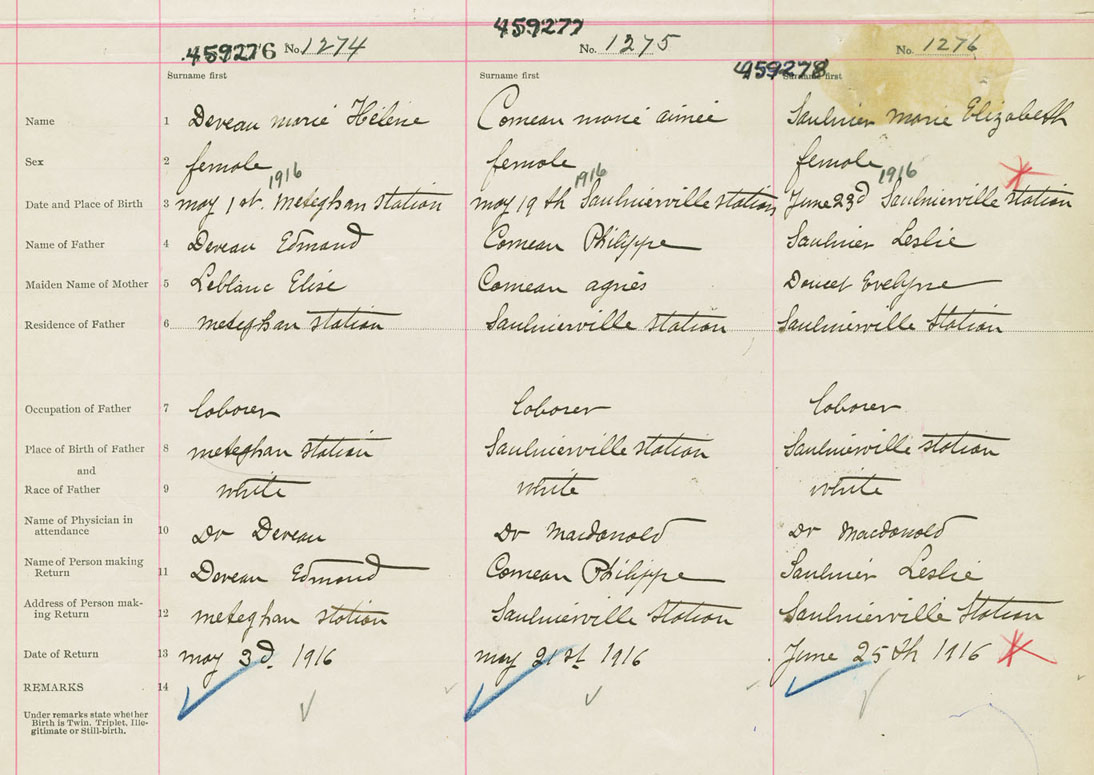 459276 No. 1274 459277 No. 1275 459278 No. 1276
Surname first Surname first Surname first
Name 1 Deveau marie Hélène Comeau marie aimée Saulnier marie Elizabeth
Sex 2 female female female
1916 1916 1916
Date and Place of Birth 3 may 1st. Meteghan station may 19th Saulnierville station June 23d Saulnierville station
Name of Father 4 Deveau Edmond Comeau Philippe Saulnier Leslie
Maiden Name of Mother 5 Leblanc Elise Comeau agnès Doucet Evelyne
Residence of Father 6 meteghan station Saulnierville station Saulnierville Station
Occupation of Father 7 laborer laborer laborer
Place of Birth of Father 8 meteghan station Saulnierville station Saulnierville station
and
Race of Father 9 white white white
Name of Physician in
attendance 10 Dr Deveau Dr Macdonald Dr Macdonald
Name of Person making
Return 11 Deveau Edmond Comeau Philippe Saulnier Leslie
Address of Person mak-
ing Return 12 meteghan station Saulnierville Station Saulnierville Station
Date of Return 13 may 3d. 1916 may 21st 1916 June 25th 1916
REMARKS 14
Under remarks state whether
Birth is Twin, Triplet, Ille-
gitimate or Still-birth.